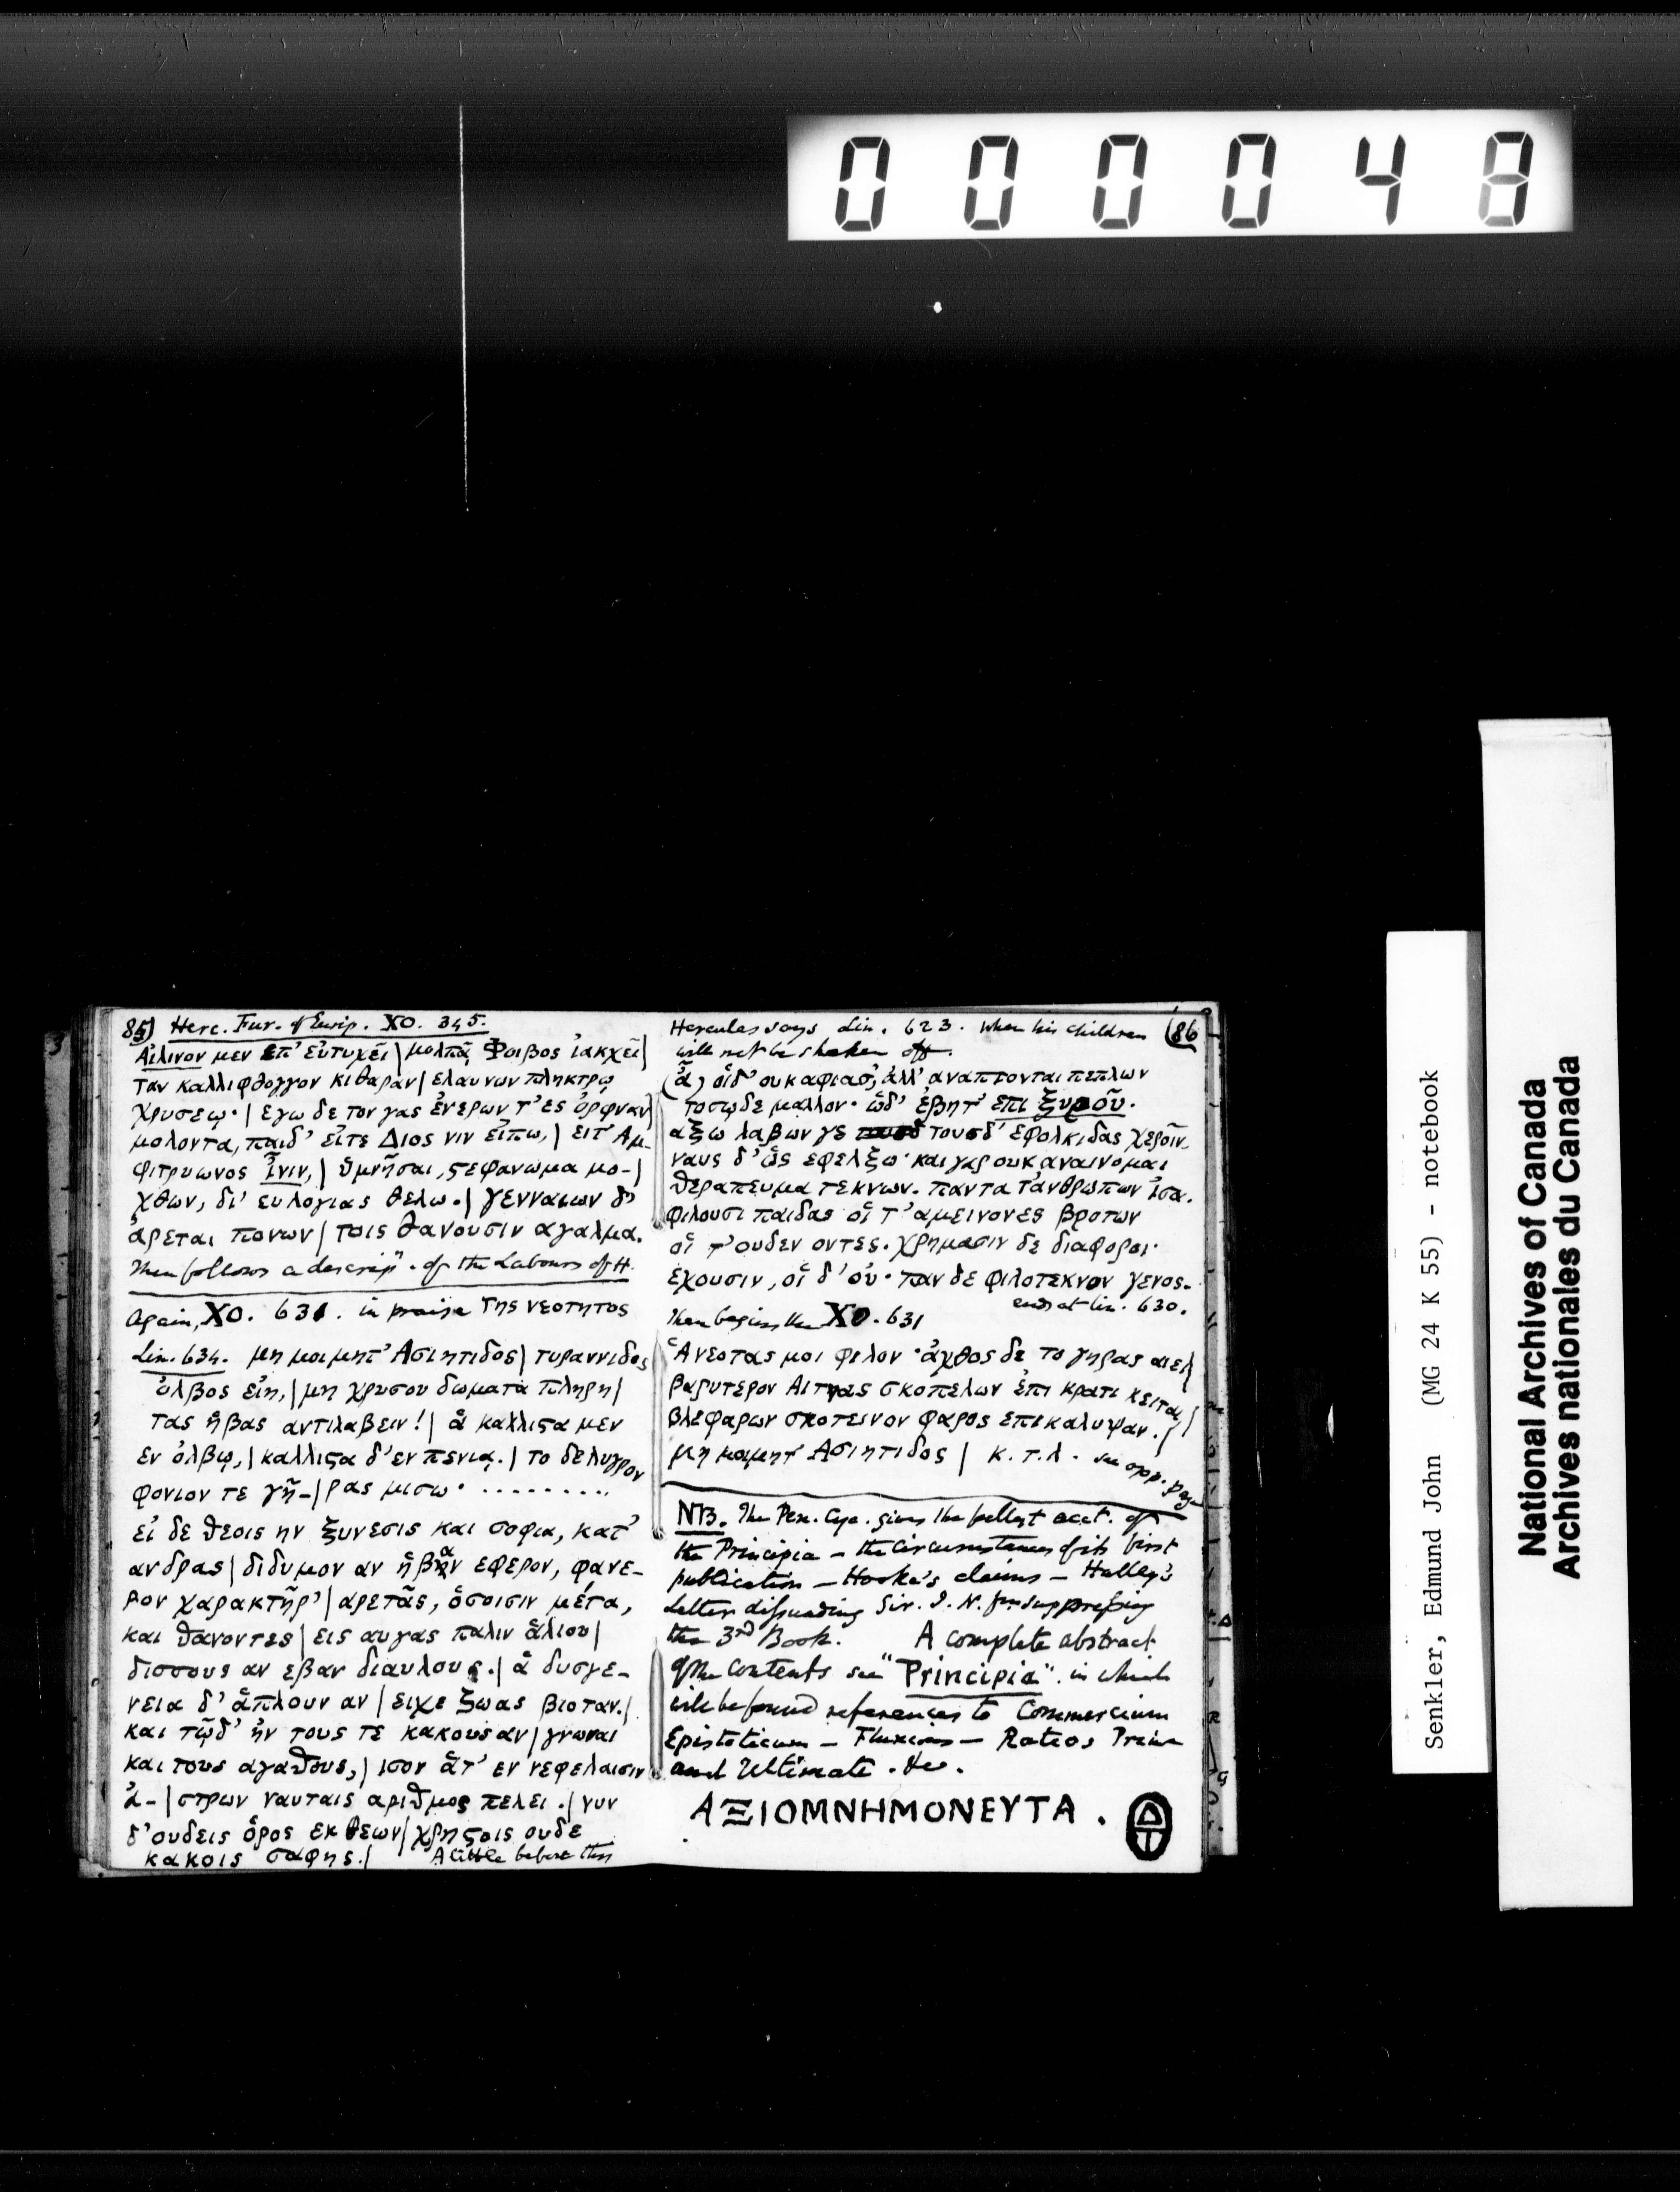 000048
85) Herc. Fur. of Eurip. ΧΟ. 345.
Αἴλινον μεν επ' εὐτυχεῖ | μολπᾷ Φοιβος ἰακχεῖ |
τὰν καλλιφθογγον κιθαραν | ελαυνων πληκτρῳ
χρυσεῳ· | εγω δε τον γας ἐνερων τ' ες ὀρφναν |
μολοντα, παιδ' εἴτε Διος νιν εἴπω, | ειτ' Αμ-
φιτρυωνος ἶνιν, | ὑμνῆσαι, ϛεφανωμα μο- |
χθων, δι' ευλογιας θελω. | γενναιων δ'
ἀρεται πονων | τοις θανουσιν αγαλμα.
Then follows a descripn. of the Labours of H.
Again, ΧΟ. 631. in praise της νεοτητος
Lin. 634. μη μοι μητ' Ασιητιδος | τυραννιδος
ὀλβος εἰη, | μη χρυσου δωματα πληρη |
τας ἥβας αντιλαβειν! | ἃ καλλιϛα μεν
εν ὀλβῳ, | καλλιϛα δ' εν πενιᾳ. | το δε λυγρον
φονιον τε γῆ- | ρας μισω· .........
εἰ δε θεοις ην ξυνεσις και σοφια, κατ'
ανδρας | διδυμον αν ἥβαν εφερον, φανε-
ρον χαρακτῆρ' | αρετᾶς, ὅσοισιν μέτα,
και θανοντες | εις αυγας παλιν ἅλιου |
δισσους αν εβαν διαυλους. | ἁ δυσγε-
νεια δ' ἅπλουν αν | ειχε ζωας βιοταν. |
και τῷδ' ἦν τους τε κακους αν | γνωναι
και τους αγαθους, | ισον ἅτ' εν νεφελαισιν
ἀ- | στρων ναυταις αριθμος πελει. | νυν
δ' ουδεις ὅρος εκ θεων | χρηϛοις ουδε
κακοις σαφης. | A little before this
Hercules says Lin. 623. when his children (86
will not be shaken off.
(ἆ) οἵδ' ουκ αφιασ', ἀλλ' αναπτονται πεπλων
τοσῳδε μαλλον· ὧδ' ἐβητ' ἐπι ξυροῦ.
αξω λαβων γε τουσδ' εφολκιδας χεροῖν.
ναυς δ' ὣς εφελξω· και γαρ ουκ αναινομαι
θεραπευμα τεκνων. παντα τἀνθρωπων ἰσα.
φιλουσι παιδας οἵ τ' αμεινονες βροτων
οἵ τ' ουδεν οντες. χρημασιν δε διαφοροι·
εχουσιν, οἵ δ' οὐ· παν δε φιλοτεκνον γενος.
ends at lin. 630.
Then begins the ΧΟ. 631
Ἁ νεοτας μοι φιλον· ἀχθος δε το γηρας αιει |
βαρυτερον Αιτνας σκοπελων ἐπι κρατι κειται, |
βλεφαρων σκοτεινον φαρος επικαλυψαν. |
μη μοι μητ' Ασιητιδος | κ.τ.λ. see opp. page
NB. The Pen. Cyc. gives the fullest acct. of
the Principia – the circumstances of its first
publication – Hooke's claims – Halley's
Letter dissuading Sir. I. N. from suppressing
the 3rd Book. A complete abstract
of the contents see "Principia" in which
will be found references to Commercium
Epistolicum – Fluxions – Ratios Prime
and Ultimate. &c.
ΑΞΙΟΜΝΗΜΟΝΕΥΤΑ.
Senkler, Edmund John (MG 24 K 55) - notebook
National Archives of Canada
Archives nationales du Canada